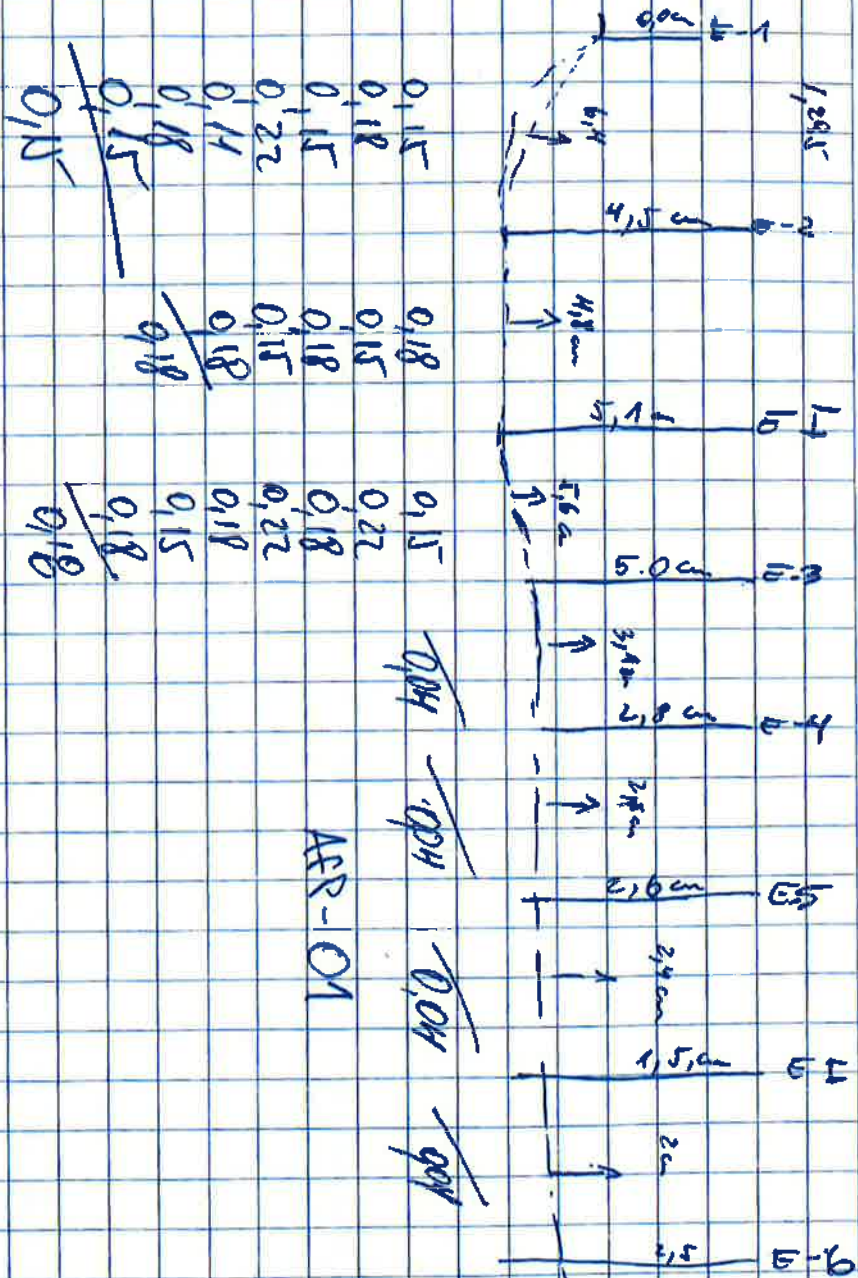 1,295
0,0cm E-1
6,4
4,5 cm E-2
4,8 cm
5,1
5,6
5.0 cm E-3
2,8 cm E-4
2,6 cm E-5
2,4 cm
1,5, cm
2
2,5 E-6
0,15
0,18
0,15
0,22
0,14
0,18
0,15
0,15
0,18
0,15
0,18
0,15
0,18
0,18
0,15
0,22
0,18
0,22
0,18
0,15
0,18
0,18
0,04
0,04
0,04
0,04
AFR-101